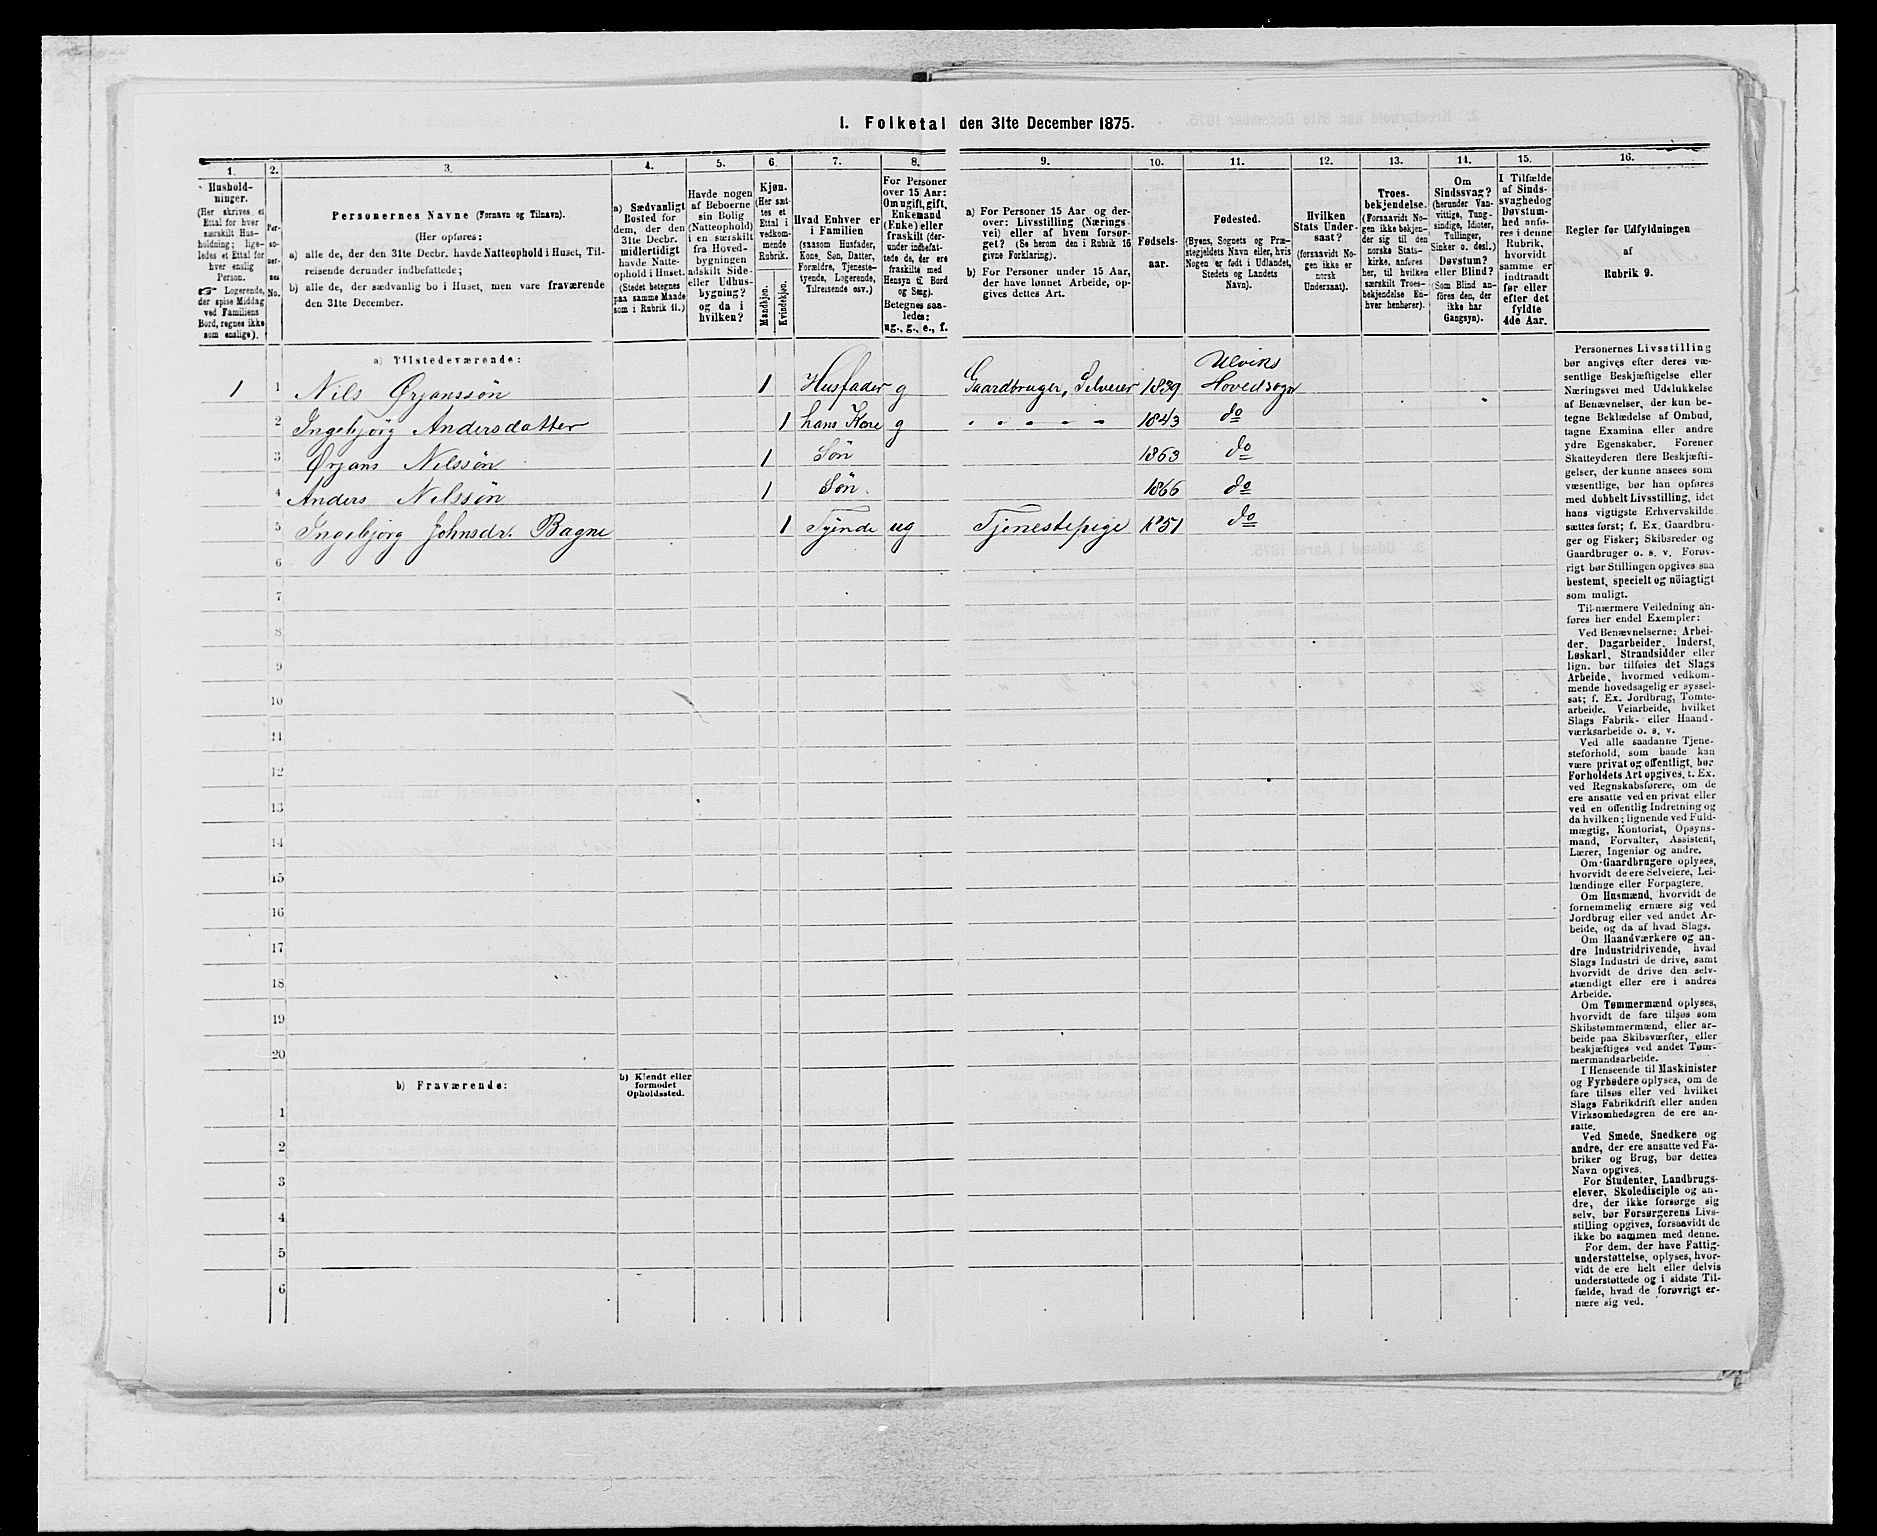 I. Folketal den 31te December 1875.
1. 2. 3. 4. 5. 6. 7. 8. 9. 10. 11. 12. 13. 14. 15. 16.
Hushold-
ninger.
(Her skrives et
Ettal for hver
særskilt Hus-
holdning; lige-
ledes et Ettal for
hver enslig
Person.
☞ Logerende,
der spise Middag
ved Familiens
Bord, regnes ikke
som enslige).
Per-
so-
ner-
nes
No.
Personernes Navne (Fornavn og Tilnavn).
(Her opføres:
a) alle de, der den 31te Decbr. havde Natteophold i Huset, Til-
reisende derunder indbefattede;
b) alle de, der sædvanlig bo i Huset, men vare fraværende
den 31te December.
a) Sædvanligt
Bosted for
dem, der den
31te Decbr.
midlertidigt
havde Natte-
ophold i Huset.
(Stedet betegnes
paa samme Maade
som i Rubrik 11.)
Havde nogen
af Beboerne
sin Bolig
(Natteophold)
i en særskilt
fra Hoved-
bygningen
adskilt Side-
eller Udhus-
bygning?
og da i
hvilken?
Kjøn.
(Her sæt-
tes et
Ettal i
vedkom-
mende
Rubrik.
Mandkjøn.
Kvindekjøn.
Hvad Enhver er
i Familien
(saasom Husfader,
Kone, Søn, Datter,
Forældre, Tjeneste-
tyende, Logerende,
Tilreisende osv.)
For Personer
over 15 Aar:
Om ugift, gift,
Enkemand
(Enke) eller
fraskilt (der-
under indbefat-
tede de, der ere
fraskilte med
Hensyn til Bord
og Seng).
Betegnes saa-
ledes:
ug., g., e., f.
a) For Personer 15 Aar og der-
over: Livsstilling (Nærings-
vei) eller af hvem forsør-
get? (Se herom den i Rubrik 16
givne Forklaring).
b) For Personer under 15 Aar,
der have lønnet Arbeide, op-
gives dettes Art.
Fødsels-
aar.
Fødested.
(Byens, Sognets og Præ-
stegjeldets Navn eller, hvis
Nogen er født i Udlandet,
Stedets og Landets
Navn).
Hvilken
Stats Under-
saat?
(forsaavidt No-
gen ikke er
norsk
Undersaat).
Troes-
bekjendelse.
(Forsaavidt No-
gen ikke bekjen-
der sig til den
norske Stats-
kirke, anføres
her, til hvilken
særskilt Troes-
bekjendelse En-
hver henhører).
Om
Sindssvag?
(herunder Van-
vittige, Tung-
sindige, Idioter,
Tullinger,
Sinker o. desl.)
Døvstum?
eller Blind?
(Som Blind an-
føres den, der
ikke har
Gangsyn).
I Tilfælde
af Sinds-
svaghed og
Døvstum-
hed anfø-
res i denne
Rubrik,
hvorvidt
samme er
indtraadt
før eller
efter det
fyldte
4de Aar.
Regler for Udfyldningen
af
Rubrik 9.
a) Tilstedeværende:
1 1 Nils Ørjanssøn 1 Husfader g Gaardbruger, Selveier 1839 Ulviks Hovedsogn
2 Ingebjørg Andersdatter 1 hans Kone g " " " " " 1843 do
3 Ørjans Nilssøn 1 Søn 1863 do
4 Anders Nilssøn 1 Søn. 1866 do
5 Ingebjørg Johnsdr. Bagne 1 Tyende ug Tjenestepige 1851 do
6
7
8
9
10
11
12
13
14
15
16
17
18
19
20
b) Fraværende:
b) Kjendt eller
formodet
Opholdssted.
1
2
3
4
5
6
Personernes Livsstilling
bør angives efter deres væ-
sentlige Beskjæftigelse eller
Næringsvei med Udelukkelse
af Benævnelser, der kun be-
tegne Beklædelse af Ombud,
tagne Examina eller andre
ydre Egenskaber. Forener
Skatteyderen flere Beskjæfti-
gelser, der kunne ansees som
væsentlige, bør han opføres
med dobbelt Livsstilling, idet
hans vigtigste Erhvervskilde
sættes først; f. Ex. Gaardbru-
ger og Fisker; Skibsreder og
Gaardbruger o. s. v. Forøv-
rigt bør Stillingen opgives saa
bestemt, specielt og nøiagtigt
som muligt.
Til nærmere Veiledning an-
føres her endel Exempler:
Ved Benævnelserne: Arbei-
der, Dagarbeider, Inderst,
Løskarl, Strandsidder eller
lign. bør tilføies det Slags
Arbeide, hvormed vedkom-
mende hovedsagelig er syssel-
sat; f. Ex. Jordbrug, Tomte-
arbeide, Veiarbeide, hvilket
Slags Fabrik- eller Haand-
værksarbeide o. s. v.
Ved alle saadanne Tjene-
steforhold, som baade kan
være privat og offentligt, bør
Forholdets Art opgives, t. Ex.
ved Regnskabsførere, om de
ere ansatte ved en privat eller
ved en offentlig Indretning og
da hvilken; lignende ved Fuld-
mægtig, Kontorist, Opsyns-
mand, Forvalter, Assistent,
Lærer, Ingeniør og andre.
Om Gaardbrugere oplyses,
hvorvidt de ere Selveiere, Lei-
lændinge eller Forpagtere.
Om Husmænd, hvorvidt de
fornemmelig ernære sig ved
Jordbrug eller ved andet Ar-
beide, og da af hvad Slags.
Om Haandværkere og an-
dre Industridrivende, hvad
Slags Industri de drive, samt
hvorvidt de drive den selv-
stændigt eller ere i andres
Arbeide.
Om Tømmermænd oplyses,
hvorvidt de fare tilsøs som
Skibstømmermænd, eller ar-
beide paa Skibsværfter, eller
beskjæftiges ved andet Tøm-
mermandsarbeide.
I Henseende til Maskinister
og Fyrbødere oplyses, om de
fare tilsøs eller ved hvilket
Slags Fabrikdrift eller anden
Virksomhedsgren de ere an-
satte.
Ved Smede, Snedkere og
andre, der ere ansatte ved Fa-
briker og Brug, bør dettes
Navn opgives.
For Studenter, Landbrugs-
elever, Skoledisciple og an-
dre, der ikke forsørge sig
selv, bør Forsørgerens Livs-
stilling opgives, forsaavidt de
ikke bo sammen med denne.
For dem, der have Fattig-
understøttelse, oplyses, hvor-
vidt de ere helt eller delvis
understøttede og i sidste Til-
fælde, hvad de forøvrigt er-
nære sig ved.